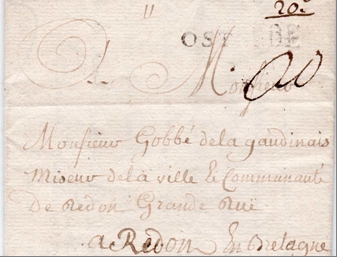 20
OST DE
A Monsieur
20
Monsieur Gobbé de la gaudinais
Miseur de la ville & Communauté
De Redon Grande Rüe
a Redon En Bretagne